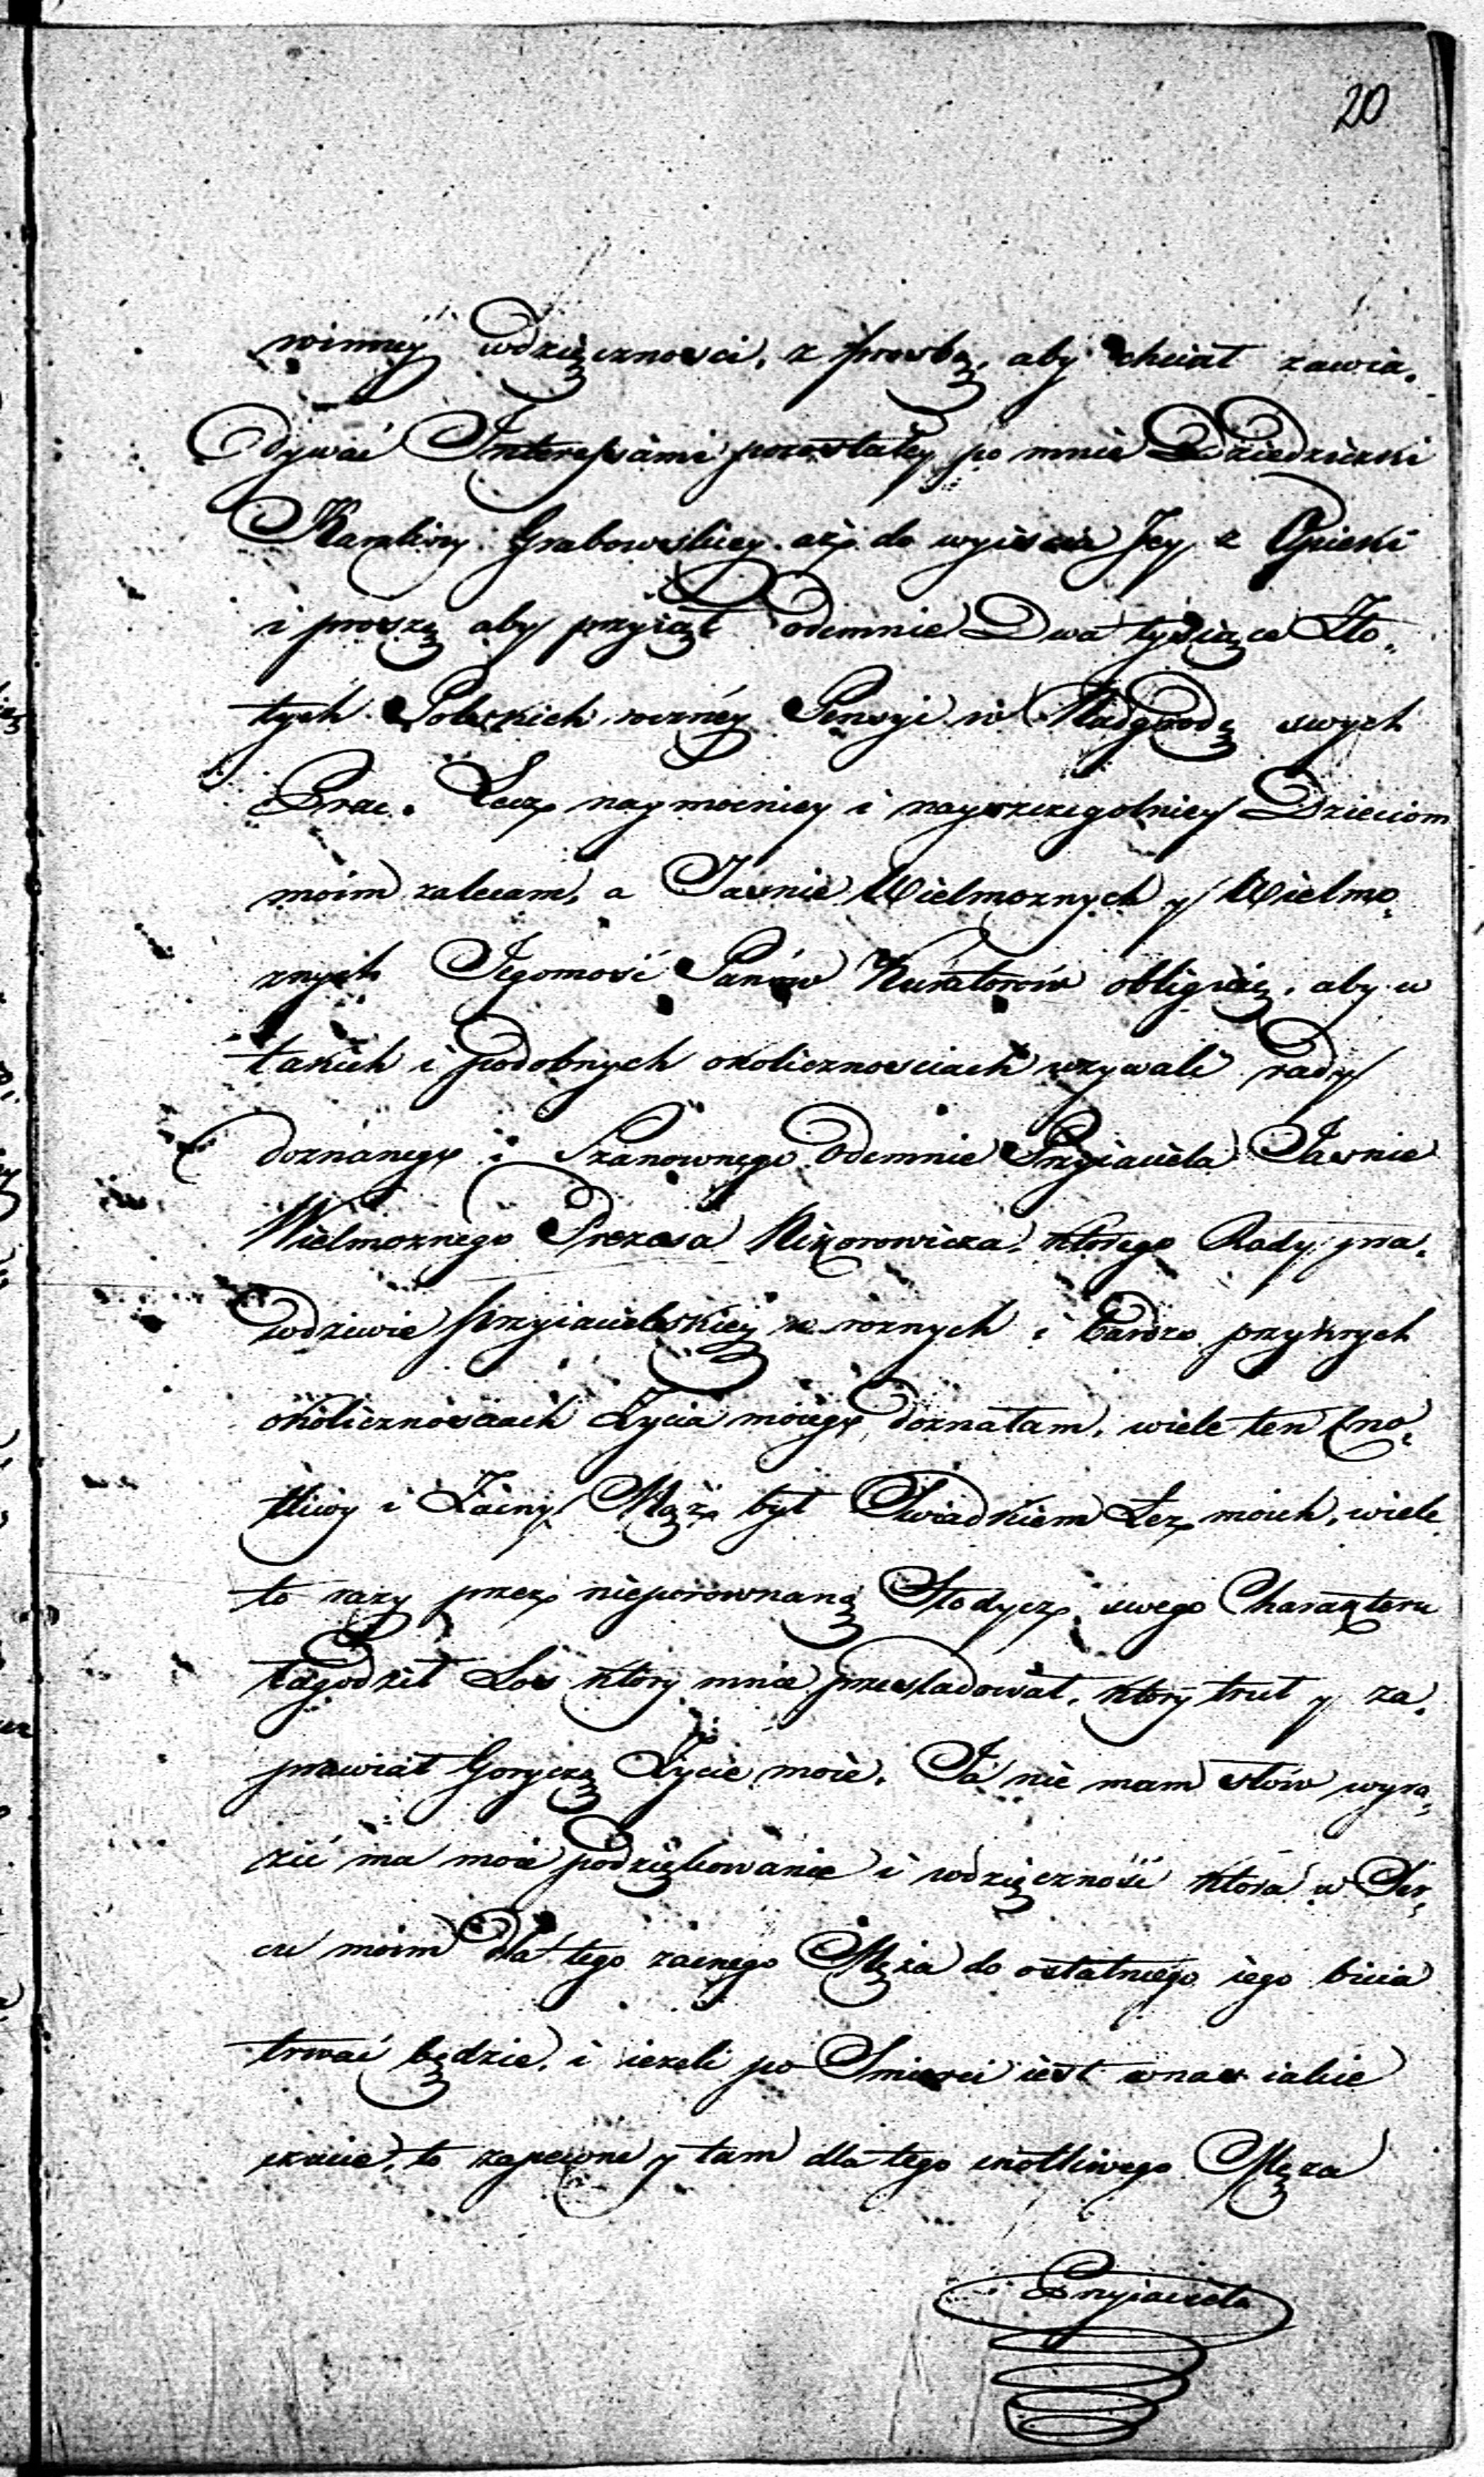 20
winney wdzięcznosci, z prosbą, aby chciał zawia„
dywać Interessami pozostałey po mnie Dziedziczki
Karoliny Grabowskiey aż do wyiscia Jey z Opieki
i proszę aby przyiął odemnie Dwa tysiące Zło„
tych Polskich roczney Pensyi w Nadgrodę swych
Prac. Lecz naymocniey i nayszczegolniey Dzieciom
moim zalecam, a Jasnie Wielmoznych y Wielmo„
znych Jegomość Panów Kuratorów obliguię, aby w
takich i podobnych okolicznosciach wzywali rady
doznanego i Szanownego Odemnie Przyiaciela Jasnie
Wielmoznego Prezesa którego Rady pra„
wdziwie przyiacielskiey w roznych i bardzo przykrych
okolicznosciach Zycia moiego doznałam, wiele ten Cno„
tliwy i Zacny Mąż był Swiadkiem Łez moich, wiele
to razy przez nieporownaną Słodycz swego Charakteru
łagodził Los który mnie przesladował, który truł y za„
prawiał Goryczą Zycie moie. Ja nie mam słów wyra„
zić ma moie podziękowanie i wdzięczność która w Ser„
cu moim dla tego zacnego Męża do ostatniego iego bicia
trwać będzie, i iezeli po Smierci iest w nas iakie
czucie, to zapewne y tam dla tego cnotliwego Męza
Przyiaciela